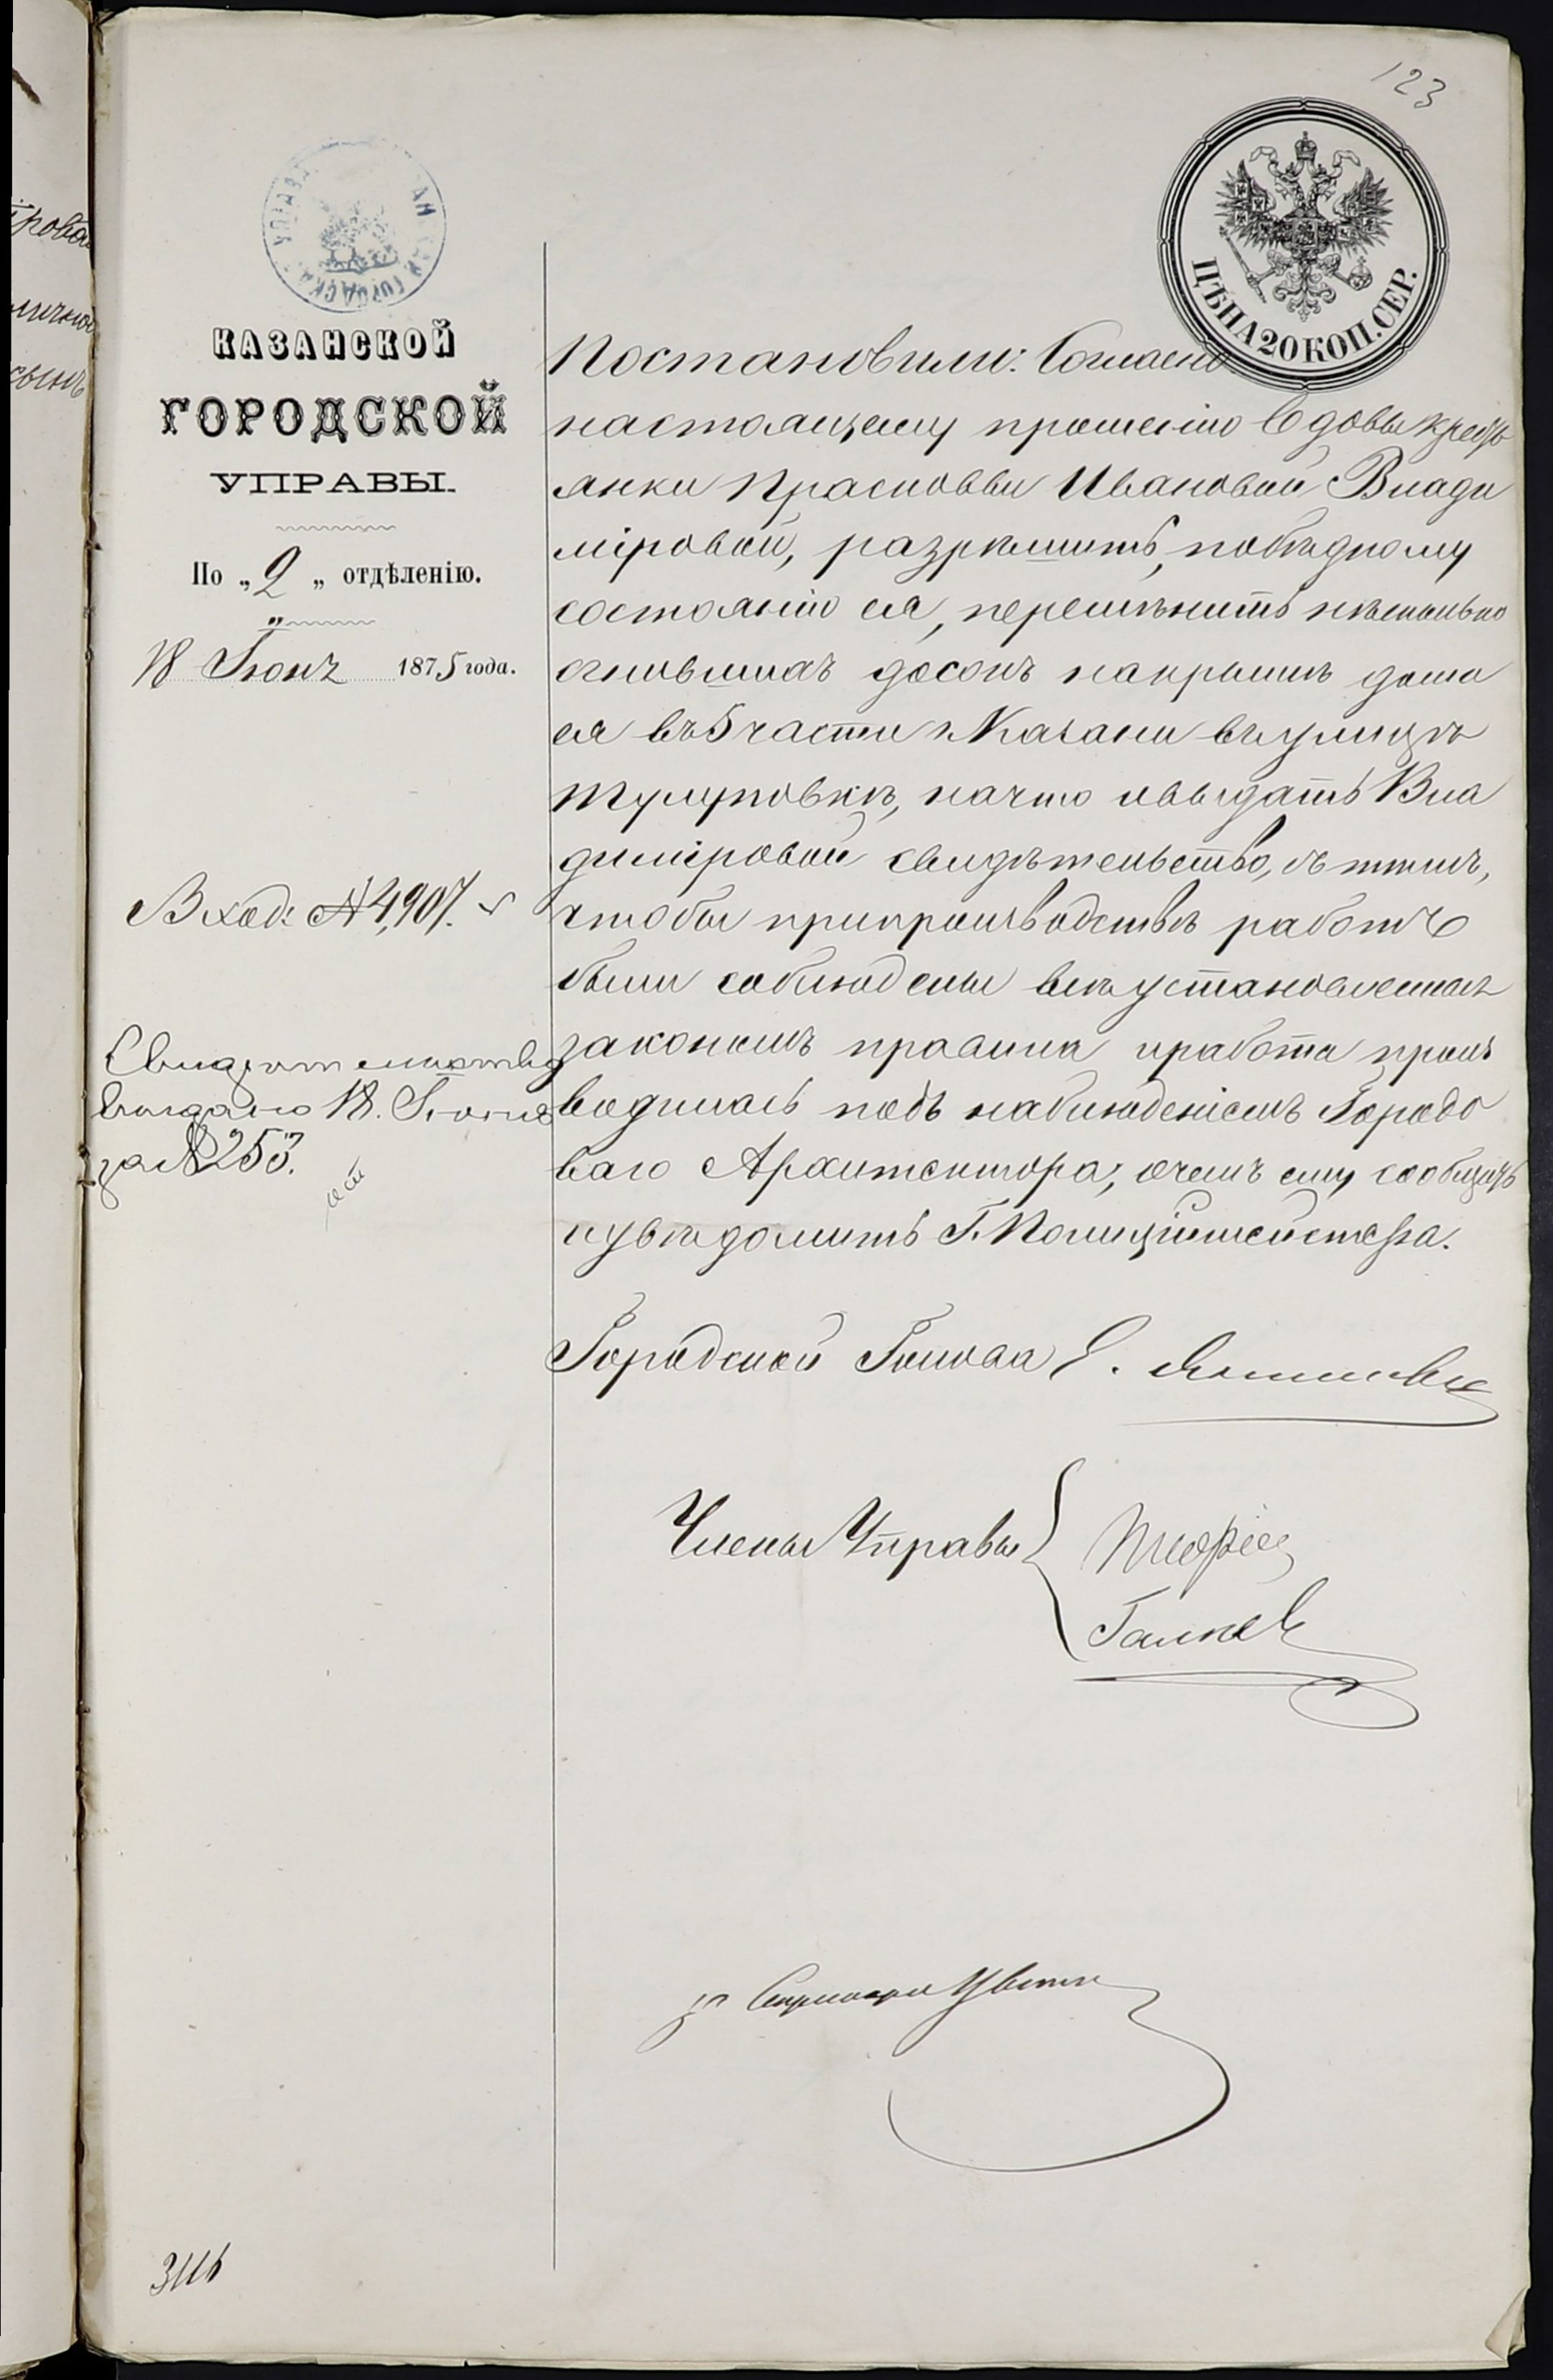 123
ЦѢНА 20 КОП. СЕР.
КАЗАНСКОЙ
ГОРОДСКОЙ
УПРАВЫ.
По „2„ отдѣленію.
18 Іюня 1875 года.
Вход: № 4,907.
Свидѣтельство
выдано 18. Іюня
за № 253.
Постановили: Согласно
настоящему прошенію вдовы крестъ
янки Прасковьи Ивановой Влади
міровой, разрѣшить, по бѣдному
состоянію ея, перемѣнить нѣсколько
сгнившихъ досокъ на крышѣ дома
ея въ 5 части г. Казани въ улицѣ
Тулуповкѣ, на что и выдать Вла
диміровой свидѣтельство, съ тѣмъ,
чтобы при производствѣ работъ
были соблюдены всѣ установленныя
закономъ правила и работа произ
водилась подъ наблюденіемъ Городо
ваго Архитектора; о чемъ ему сообщить
и увѣдомить Г. Полиціймейстера.
Городской Голова
Члены Управы
Галкинъ
за Секретаря